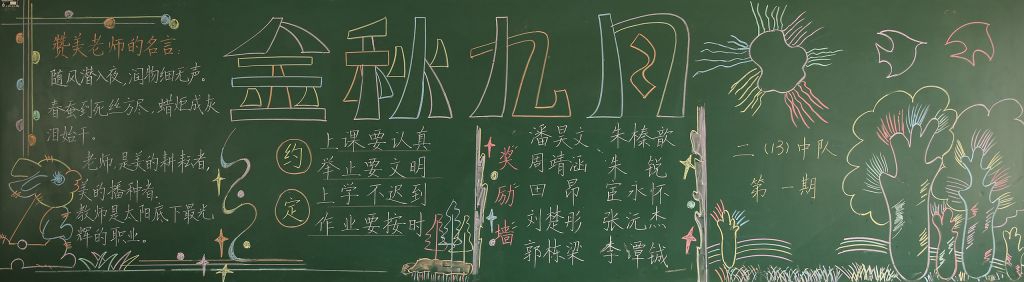 金秋九月
赞美老师的名言:
随风潜入夜,润物细无声。
春蚕到死丝方尽,蜡炬成灰
泪始干。
老师,是美的耕耘者,
美的播种者。
教师是太阳底下最光
辉的职业。
约定
上课要认真
举止要文明
上学不迟到
作业要按时
奖励墙
潘昊文 朱榛歆
周靖涵 朱锐
田昂 宦永怀
刘楚彤 张沅杰
郭栋梁 李谭铖
二(13)中队
第一期